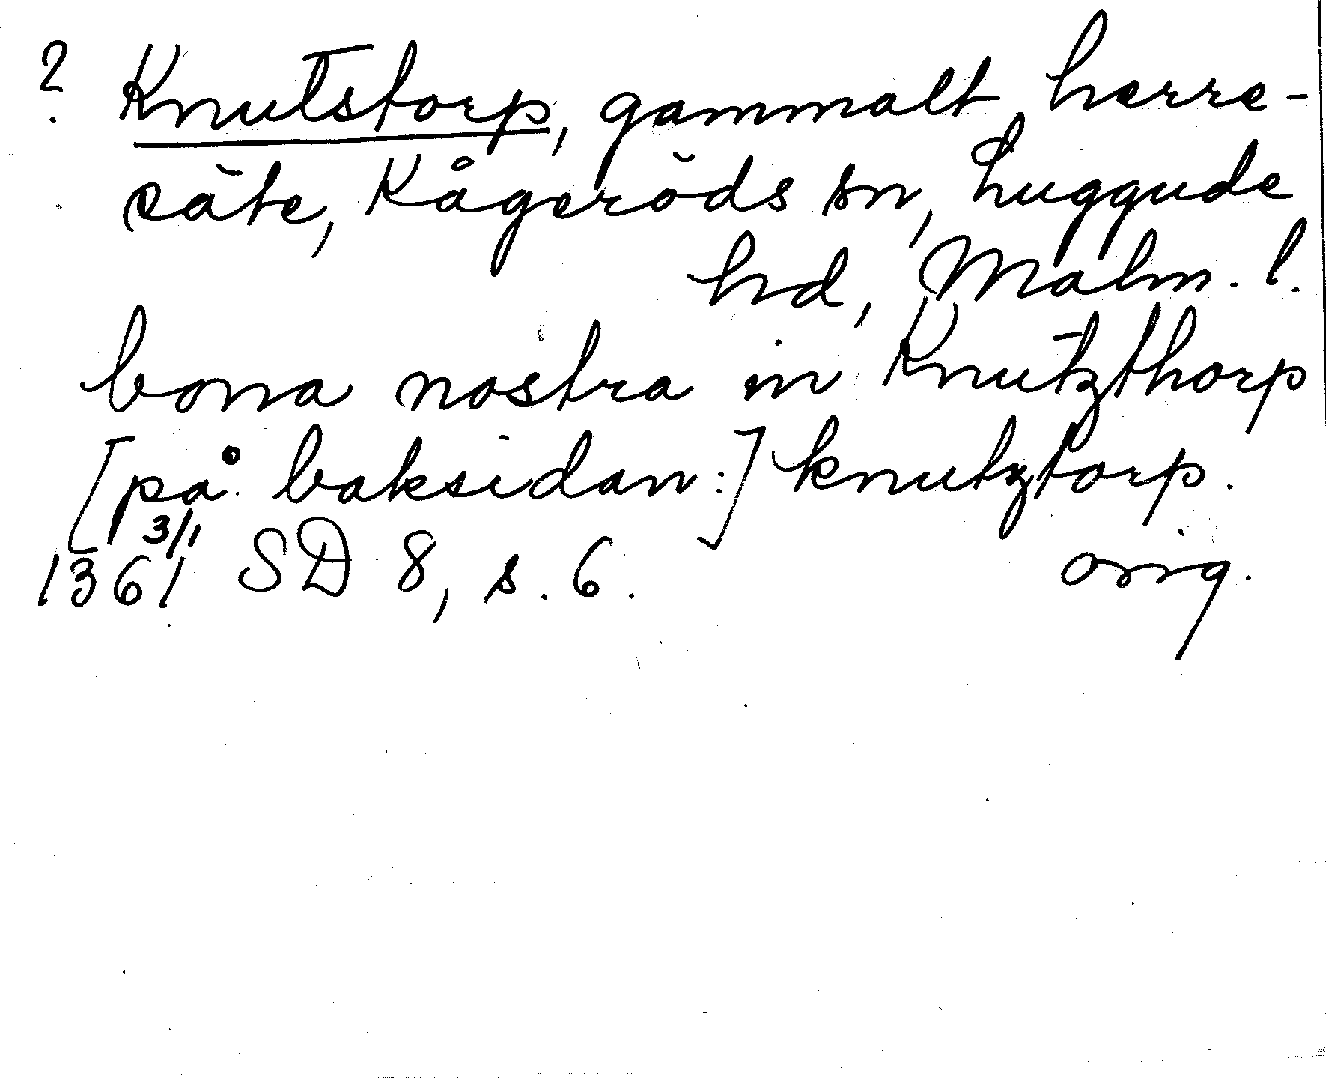 ? Knutstorp, gammalt herre-
säte, Kågeröds sn, Luggude
hd, Malm. l.
bona nostra in Knutzthorp
[på baksidan:] knutztorp.
3/1
1361 SD 8, s. 6. orig.